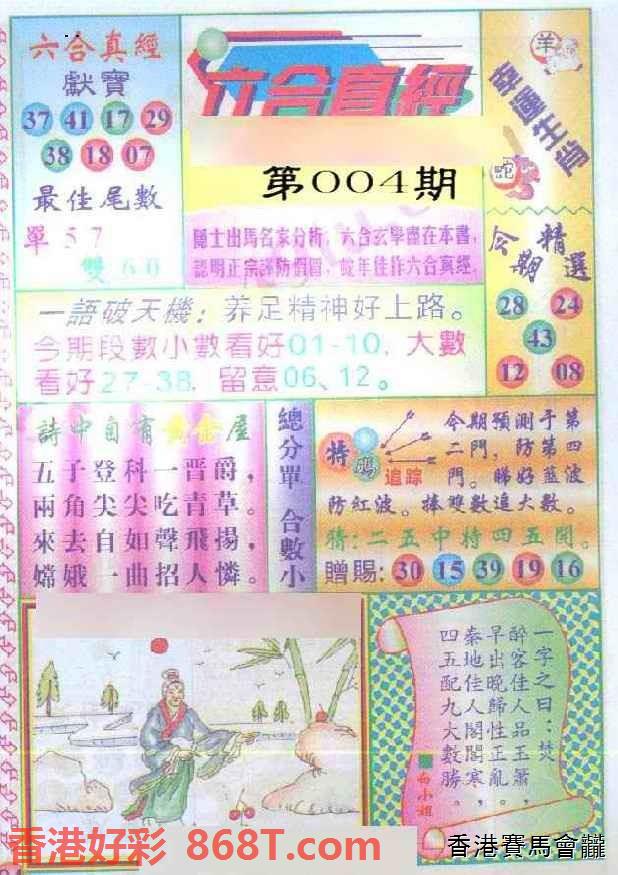 六合真經
獻寶
37 41 17 29
38 18 07
最佳尾數
單57
雙60
六合真經
第004期
隱士出馬名家分析，六合玄學盡在本書，
認明正宗謹防假冒，蛇年佳作六合真經.
羊
幸運生肖
蛇
今期精選
28 24
43
12 08
一語破天機：养足精神好上路。
今期段數小數看好01-10，大數
看好27-38，留意06、12。
詩中自有黃金屋
五子登科一晋爵，
兩角尖尖吃青草。
來去自如聲飛揚，
嫦娥一曲招人憐。
總分單 合數小
特碼
追踪
今期預測于第
二門，防第四
門。睇好藍波
防紅波。捧雙數追大數。
猜：二五中特四五開。
贈賜：30 15 39 19 16
一字之曰：焚
醉客佳人品玉簫，
早出晚歸性正亂。
秦地佳人閣閣寒，
四五配九大數勝。
白小姐
香港好彩 868T.com
香港賽馬會